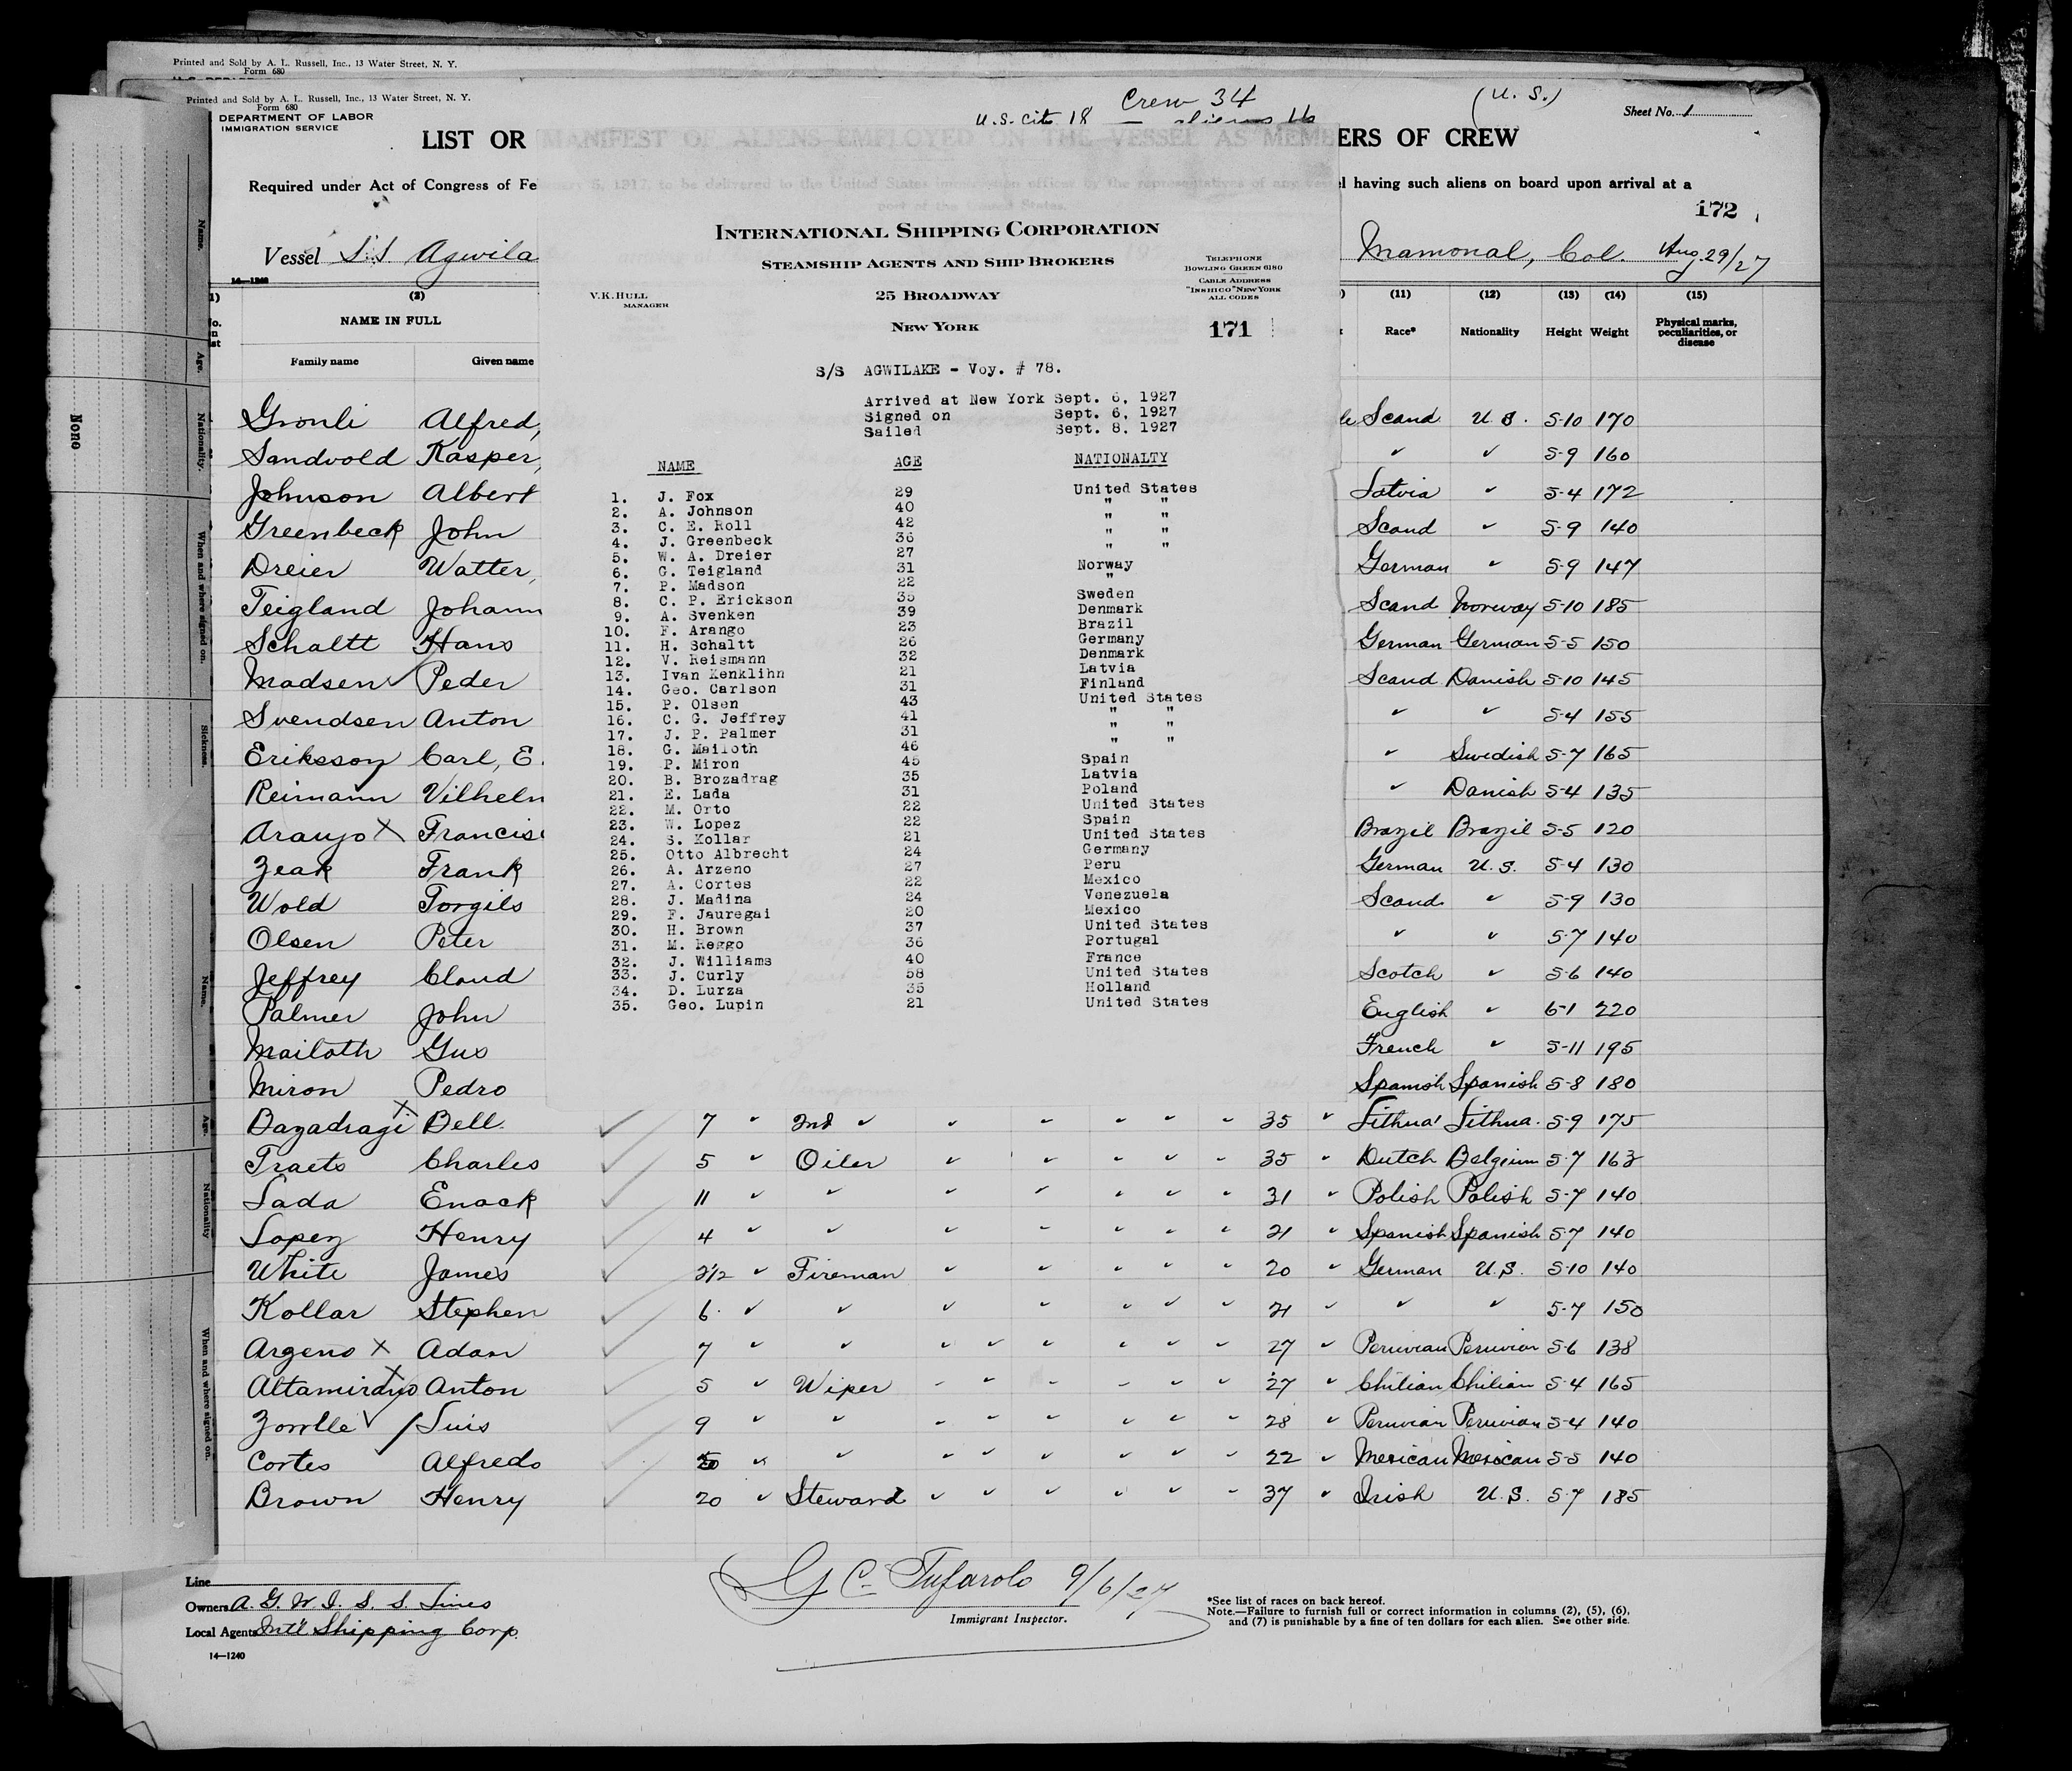 Printed and Sold by A. L. Russell, Inc., 13 Water Street, N. Y.
Form 680
Printed and Sold by A. L. Russell, Inc., 13 Water Street, N. Y.
Form 680
DEPARTMENT OF LABOR
IMMIGRATION SERVICE
Crew 34
U.S. cit 18 — aliens 16
(U. S.)
Sheet No. 1
LIST OR MANIFEST OF ALIENS EMPLOYED ON THE VESSEL AS MEMBERS OF CREW
Required under Act of Congress of Fe
el having such aliens on board upon arrival at a
172
Vessel S.S Agwila
Mamonal, Col. Aug. 29/27
14—1240
(2) (11) (12) (13) (14) (15)
NAME IN FULL Race* Nationality Height Weight Physical marks, peculiarities, or disease
Family name Given name
INTERNATIONAL SHIPPING CORPORATION
STEAMSHIP AGENTS AND SHIP BROKERS
TELEPHONE
BOWLING GREEN 6180
CABLE ADDRESS
"INSHICO" NEW YORK
ALL CODES
V. K. HULL
MANAGER
25 BROADWAY
NEW YORK
171
S/S AGWILAKE - Voy. # 78.
Arrived at New York Sept. 6, 1927
Signed on Sept. 6, 1927
Sailed Sept. 8, 1927
NAME AGE NATIONALTY
1. J. Fox 29 United States
2. A. Johnson 40 " "
3. C. E. Roll 42 " "
4. J. Greenbeck 36 " "
5. W. A. Dreier 27 " "
6. G. Teigland 31 Norway
7. P. Madson 22 "
8. C. P. Erickson 35 Sweden
9. A. Svenken 39 Denmark
10. F. Arango 23 Brazil
11. H. Schaltt 26 Germany
12. V. Reismann 32 Denmark
13. Ivan Kenklihn 21 Latvia
14. Geo. Carlson 31 Finland
15. P. Olsen 43 United States
16. C. G. Jeffrey 41 " "
17. J. P. Palmer 31 " "
18. G. Mailoth 46 " "
19. P. Miron 45 Spain
20. B. Brozadrag 35 Latvia
21. E. Lada 31 Poland
22. M. Orto 22 United States
23. W. Lopez 22 Spain
24. S. Kollar 21 United States
25. Otto Albrecht 24 Germany
26. A. Arzeno 27 Peru
27. A. Cortes 22 Mexico
28. J. Madina 24 Venezuela
29. F. Jauregai 20 Mexico
30. H. Brown 37 United States
31. M. Reggo 36 Portugal
32. J. Williams 40 France
33. J. Curly 58 United States
34. D. Lurza 35 Holland
35. Geo. Lupin 21 United States
Gronli Alfred, Scand U.S. 5-10 170
Sandvold Kasper, " " 5-9 160
Johnson Albert Latvia " 5-4 172
Greenbeck John Scand " 5-9 140
Dreier Walter, German " 5-9 147
Teigland Johann Scand Norway 5-10 185
Schaltt Hans German German 5-5 150
Madsen Peder Scand Danish 5-10 145
Svendsen Anton " " 5-4 155
Eriksson Carl, E. " Swedish 5-7 165
Reimann Vilhelm " Danish 5-4 135
Araujo X Francis Brazil Brazil 5-5 120
Zeak Frank German U.S. 5-4 130
Wold Torgils Scand " 5-9 130
Olsen Peter " " 5-7 140
Jeffrey Claud Scotch " 5-6 140
Palmer John English " 6-1 220
Mailoth Gus French " 5-11 195
Miron Pedro Spanish Spanish 5-8 180
Dazadragi X Bell 7 " 2nd " " " " " " 35 " Lithua' Lithua. 5-9 175
Traets Charles 5 " Oiler " " " " " 35 " Dutch Belgium 5-7 163
Lada Enock 11 " " " " " " " 31 " Polish Polish 5-7 140
Lopez Henry 4 " " " " " " " 21 " Spanish Spanish 5-7 140
White James 2½ " Fireman " " " " " 20 " German U.S. 5-10 140
Kollar Stephen 6 " " " " " " " 21 " " " 5-7 150
Argeno X Adan 7 " " " " " " " " 27 " Peruvian Peruvian 5-6 138
Altamirano X Anton 5 " Wiper " " " " " " 27 " Chilian Chilian 5-4 165
Zorrlle Luis 9 " " " " " " " " 28 " Peruvian Peruvian 5-4 140
Cortes Alfredo " " " " " " " " 22 " Mexican Mexican 5-5 140
Brown Henry 20 " Steward " " " " " " 37 " Irish U.S. 5-7 185
Line
Owners A. G. W. I. S. S. Lines
Local Agents Int'l Shipping Corp.
14—1240
G C Tufarolo 9/6/27
Immigrant Inspector.
*See list of races on back hereof.
Note.—Failure to furnish full or correct information in columns (2), (5), (6),
and (7) is punishable by a fine of ten dollars for each alien. See other side.
Name.
Age.
Nationality.
When and where signed on.
Sickness.
Name.
Age.
Nationality
When and where signed on.
None